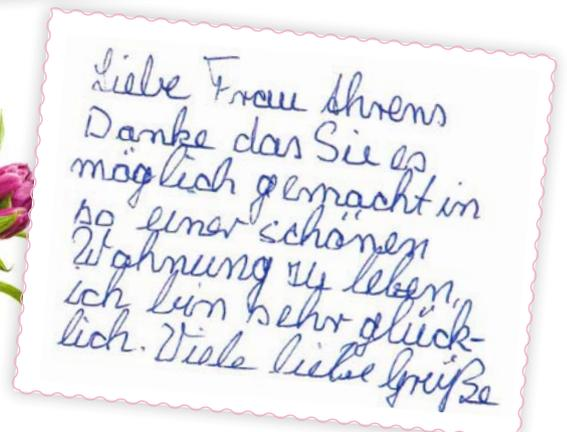 Liebe Frau Ahrens
Danke das Sie es
möglich gemacht in
so einer schönen
Wohnung zu leben,
ich bin sehr glück-
lich. Viele liebe Grüße